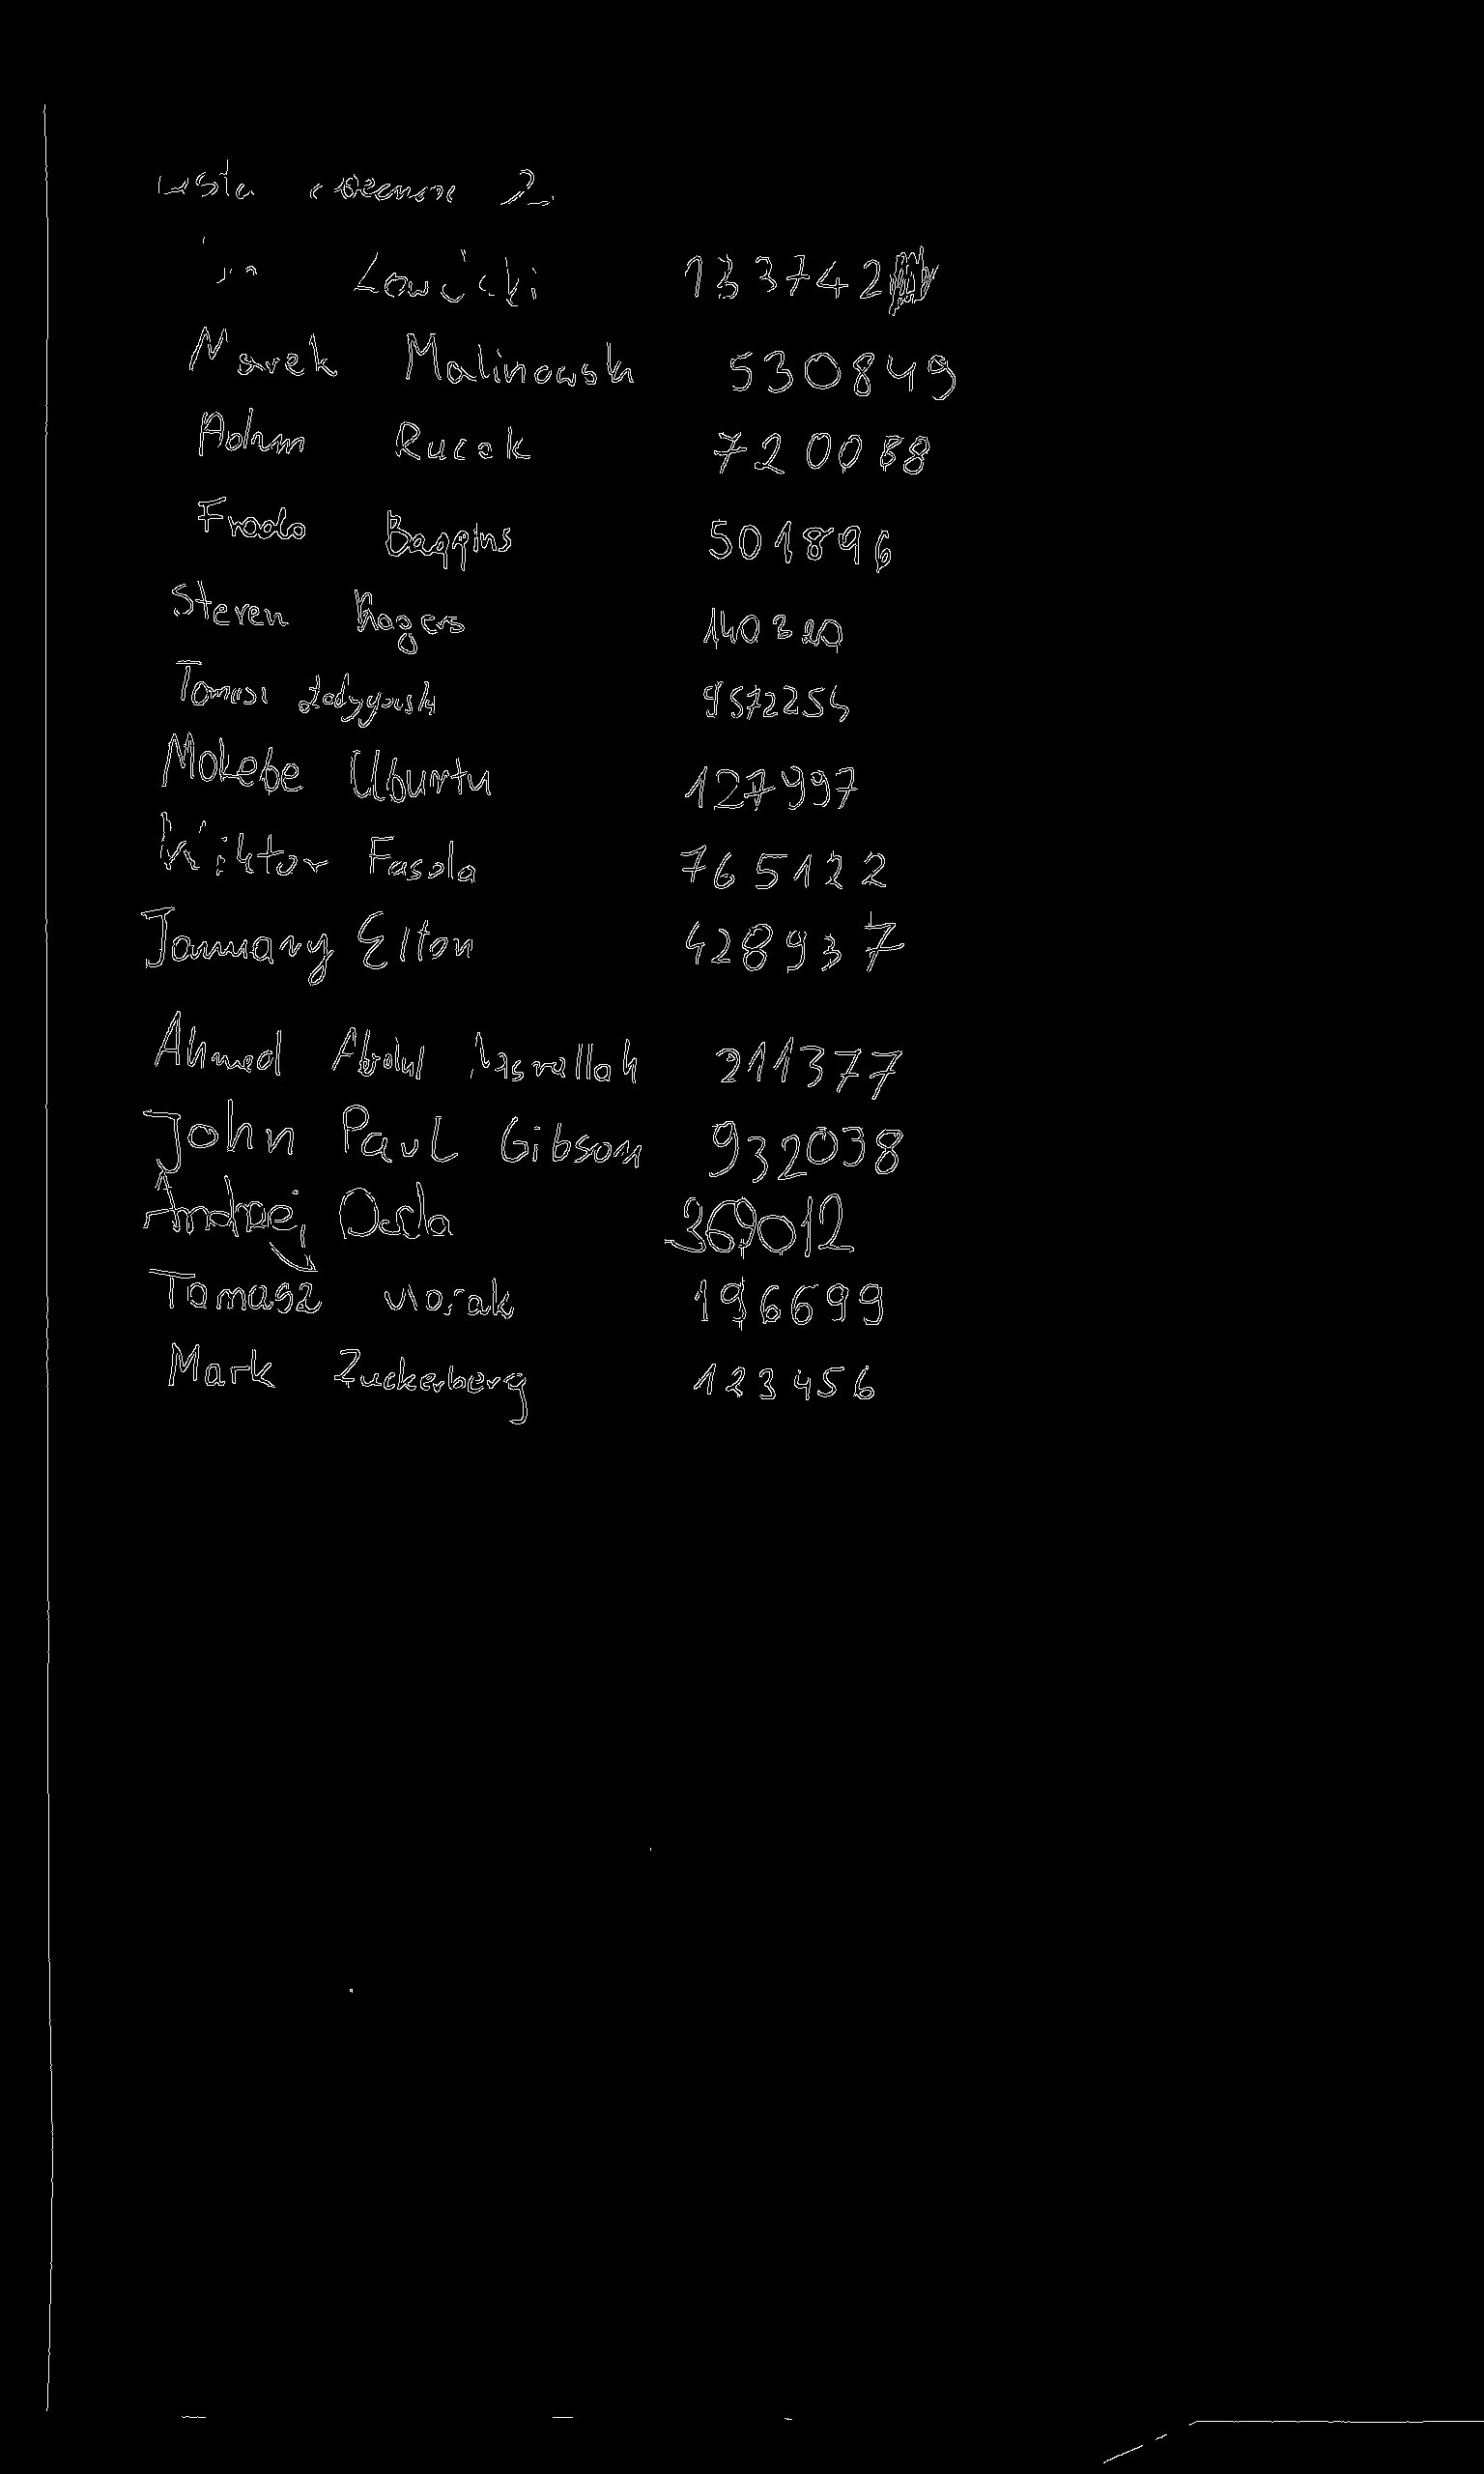 2.
133742
Marek Malinowski 530849
Adam Rucek 720088
Frodo Baggins 501896
Steven Rogers 140320
Tomasz
Mokebe Ubuntu 127997
Wiktor Fasola 765122
January Elton 428937
Ahmed Abdul Nasrallah 211377
John Paul Gibson 932038
Andrzej Duda 369012
Tomasz Norak 196699
Mark Zuckerberg 123456